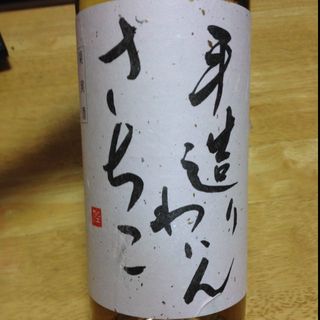 手造りわいん
さちこ